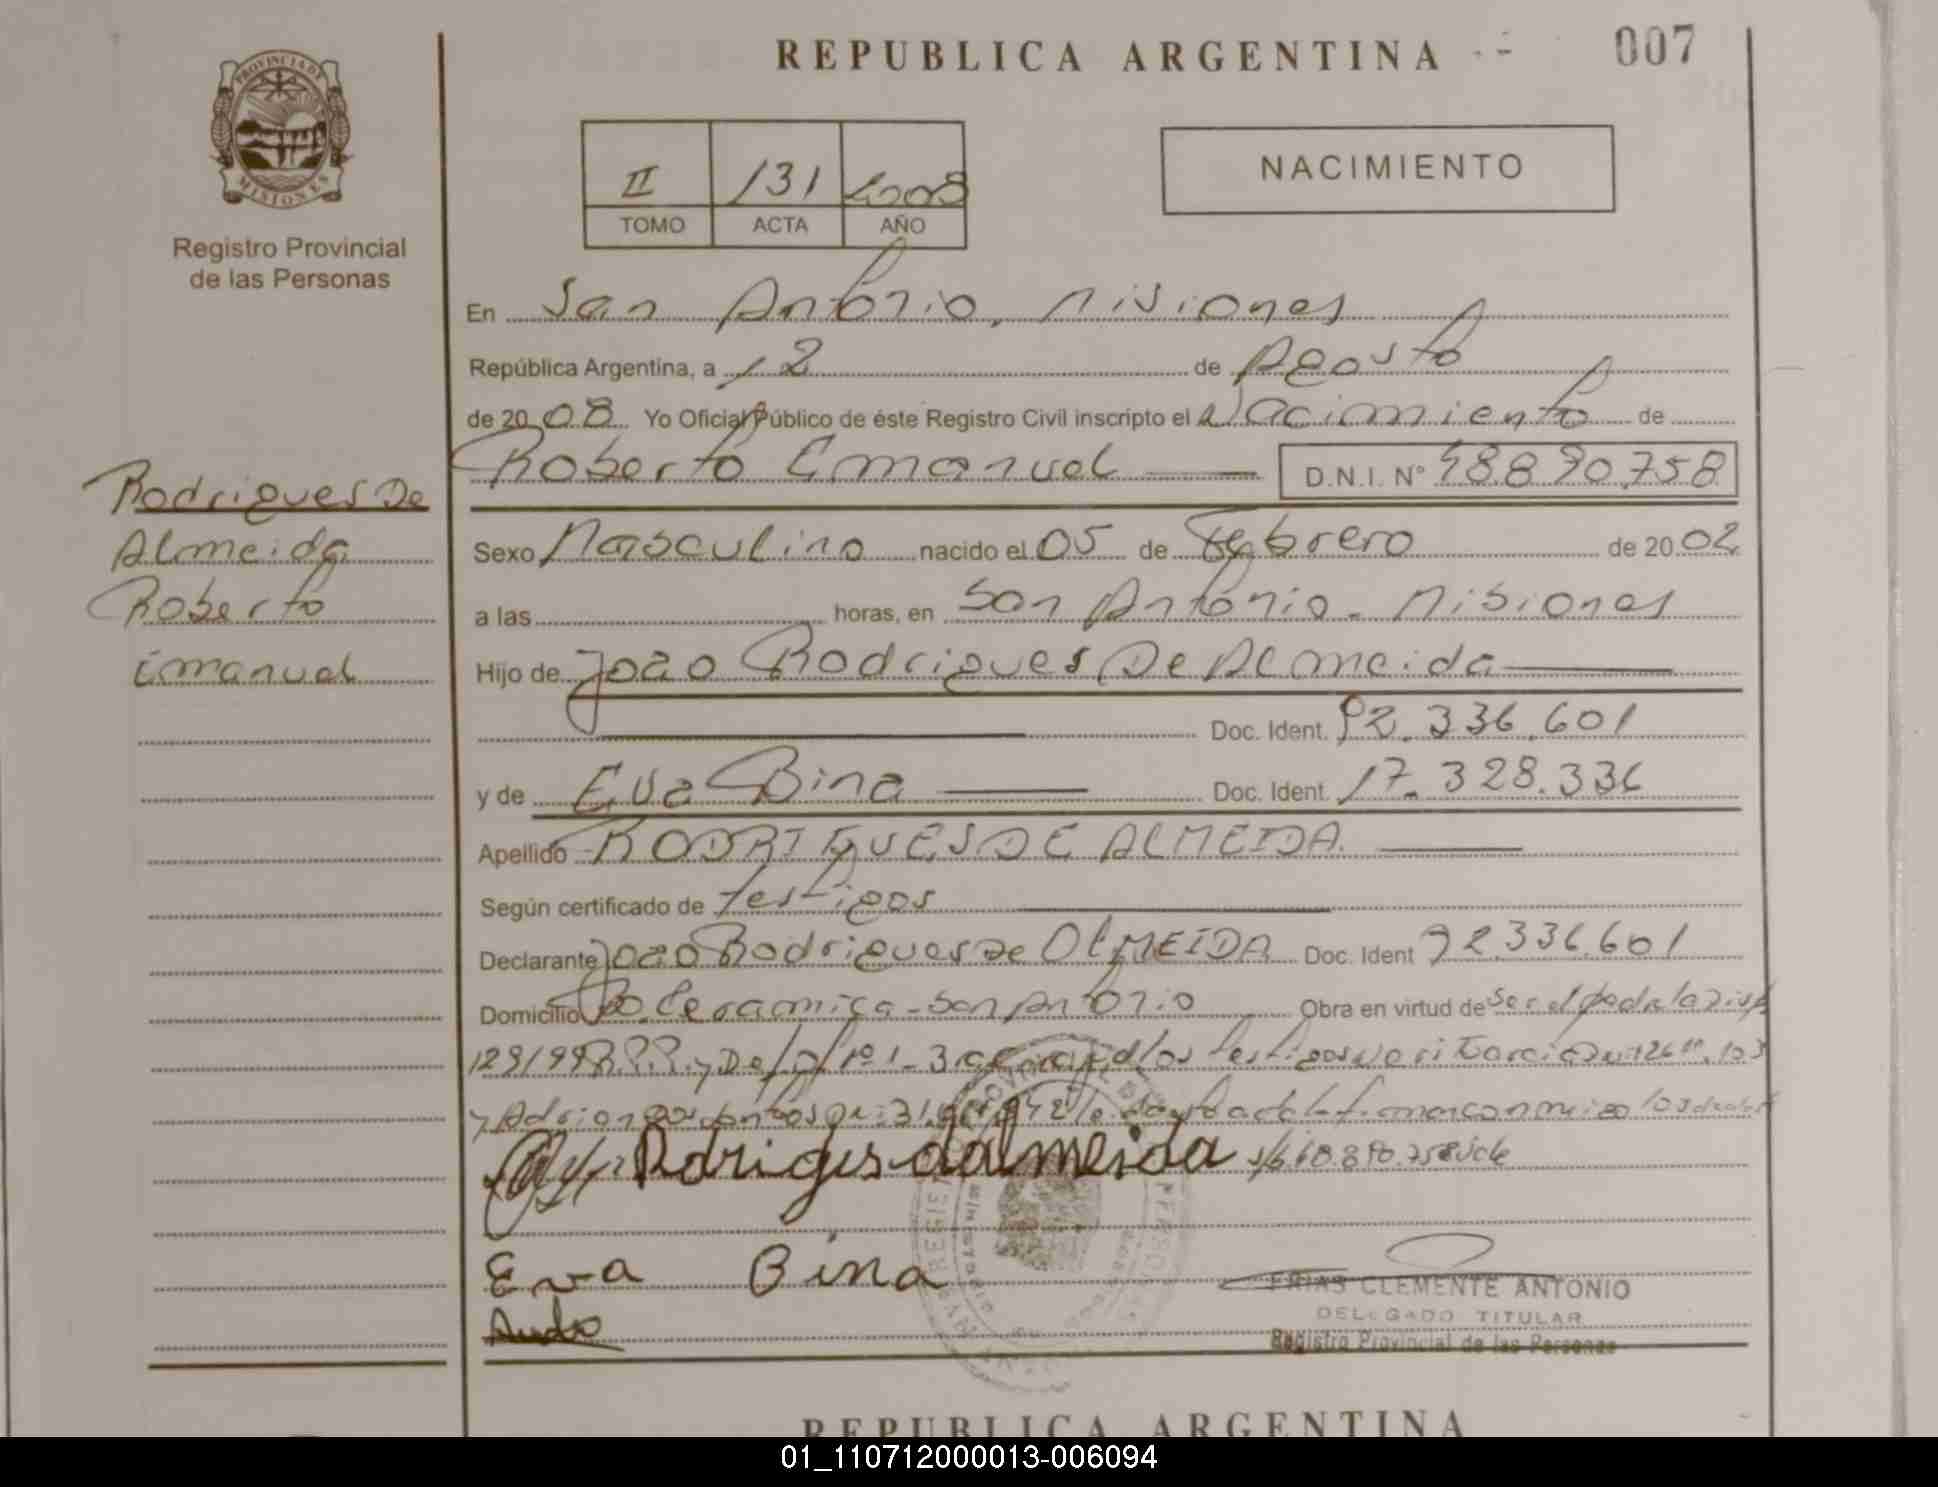 REPUBLICA ARGENTINA
007
PROVINCIA DE MISIONES
Registro Provincial
de las Personas
II 131 2008
TOMO ACTA AÑO
NACIMIENTO
En San Antonio, Misiones
República Argentina, a 12 de Agosto
de 2008 Yo Oficial Público de éste Registro Civil inscripto el Nacimiento de
Roberto Emanuel D.N.I. N° 48.890.758
Rodrigues De
Almeida
Roberto
Emanuel
Sexo Masculino nacido el 05 de Febrero de 2002
a las horas, en San Antonio - Misiones
Hijo de Joao Rodrigues De Almeida
Doc. Ident. 92.336.601
y de Eva Bina Doc. Ident. 17.328.336
Apellido RODRIGUES DE ALMEIDA.
Según certificado de testigos
Declarante Joao Rodrigues De ALMEIDA Doc. Ident 92.336.601
Domicilio Bo. Ceramica - San Antonio Obra en virtud de ser el
129/99 R.P.P. y los testigos
y
Rdriges dalmeida
Eva Bina
FRIAS CLEMENTE ANTONIO
DELEGADO TITULAR
Registro Provincial de las Personas
REPUBLICA ARGENTINA
01_110712000013-006094